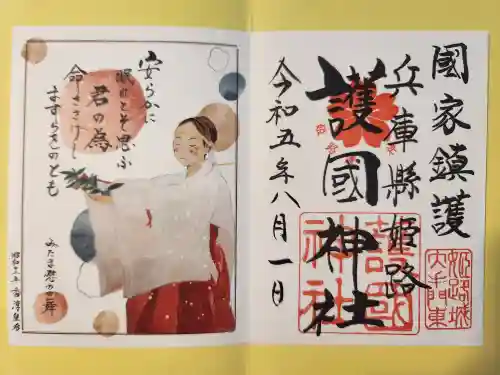 國家鎮護
兵庫縣姫路
護國神社
令和五年八月一日
護國
神社
姫路城
大手東
安らかに
眠れとぞ思ふ
君の為
命ささげし
ますらをのとも
みたま慰の舞